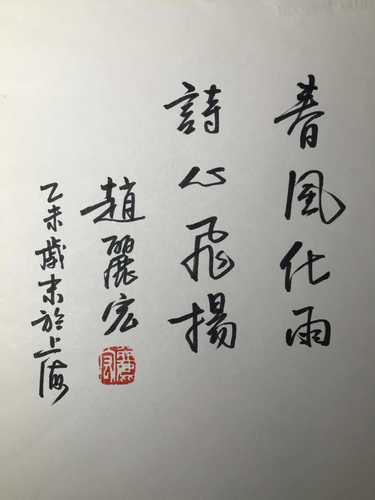 春風化雨
詩心飛揚
趙麗宏
乙未歲末於上海